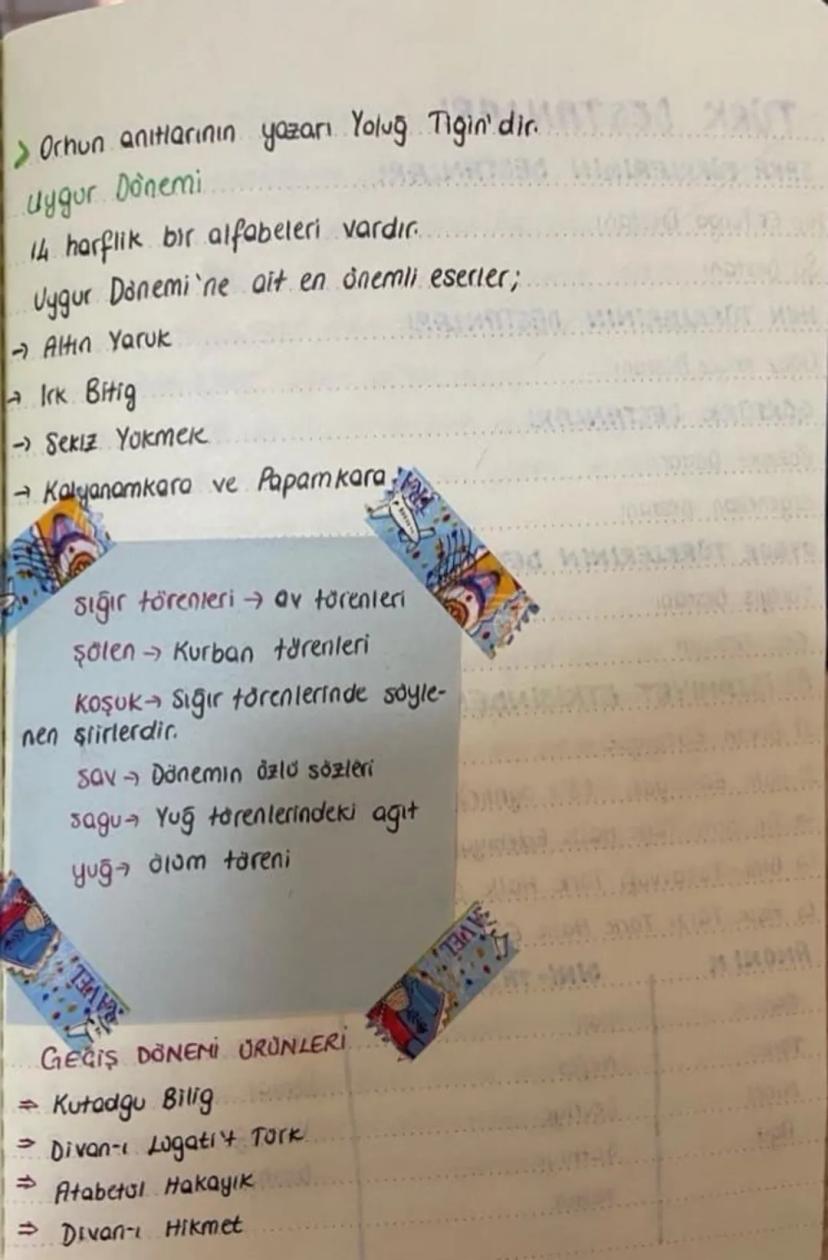 > Orhun anıtlarının yazarı Yoluğ Tigin'dir.
Uygur Dönemi
14 harflik bir alfabeleri vardır.
Uygur Dönemi'ne ait en önemli eserler;
→ Altın Yaruk
→ Irk Bitig
→ Sekiz Yokmek
→ Kalyanamkara ve Papamkara
sığır törenleri → av törenleri
şölen → Kurban törenleri
koşuk → Sığır törenlerinde söyle-
nen şiirlerdir.
sav → Dönemin özlü sözleri
sagu → Yuğ törenlerindeki ağıt
yuğ → ölüm töreni
GEÇİŞ DÖNEMİ ÜRÜNLERİ
⇒ Kutadgu Bilig
⇒ Divan-ı Lügati't Türk
⇒ Atabetül Hakayık
⇒ Divan-ı Hikmet